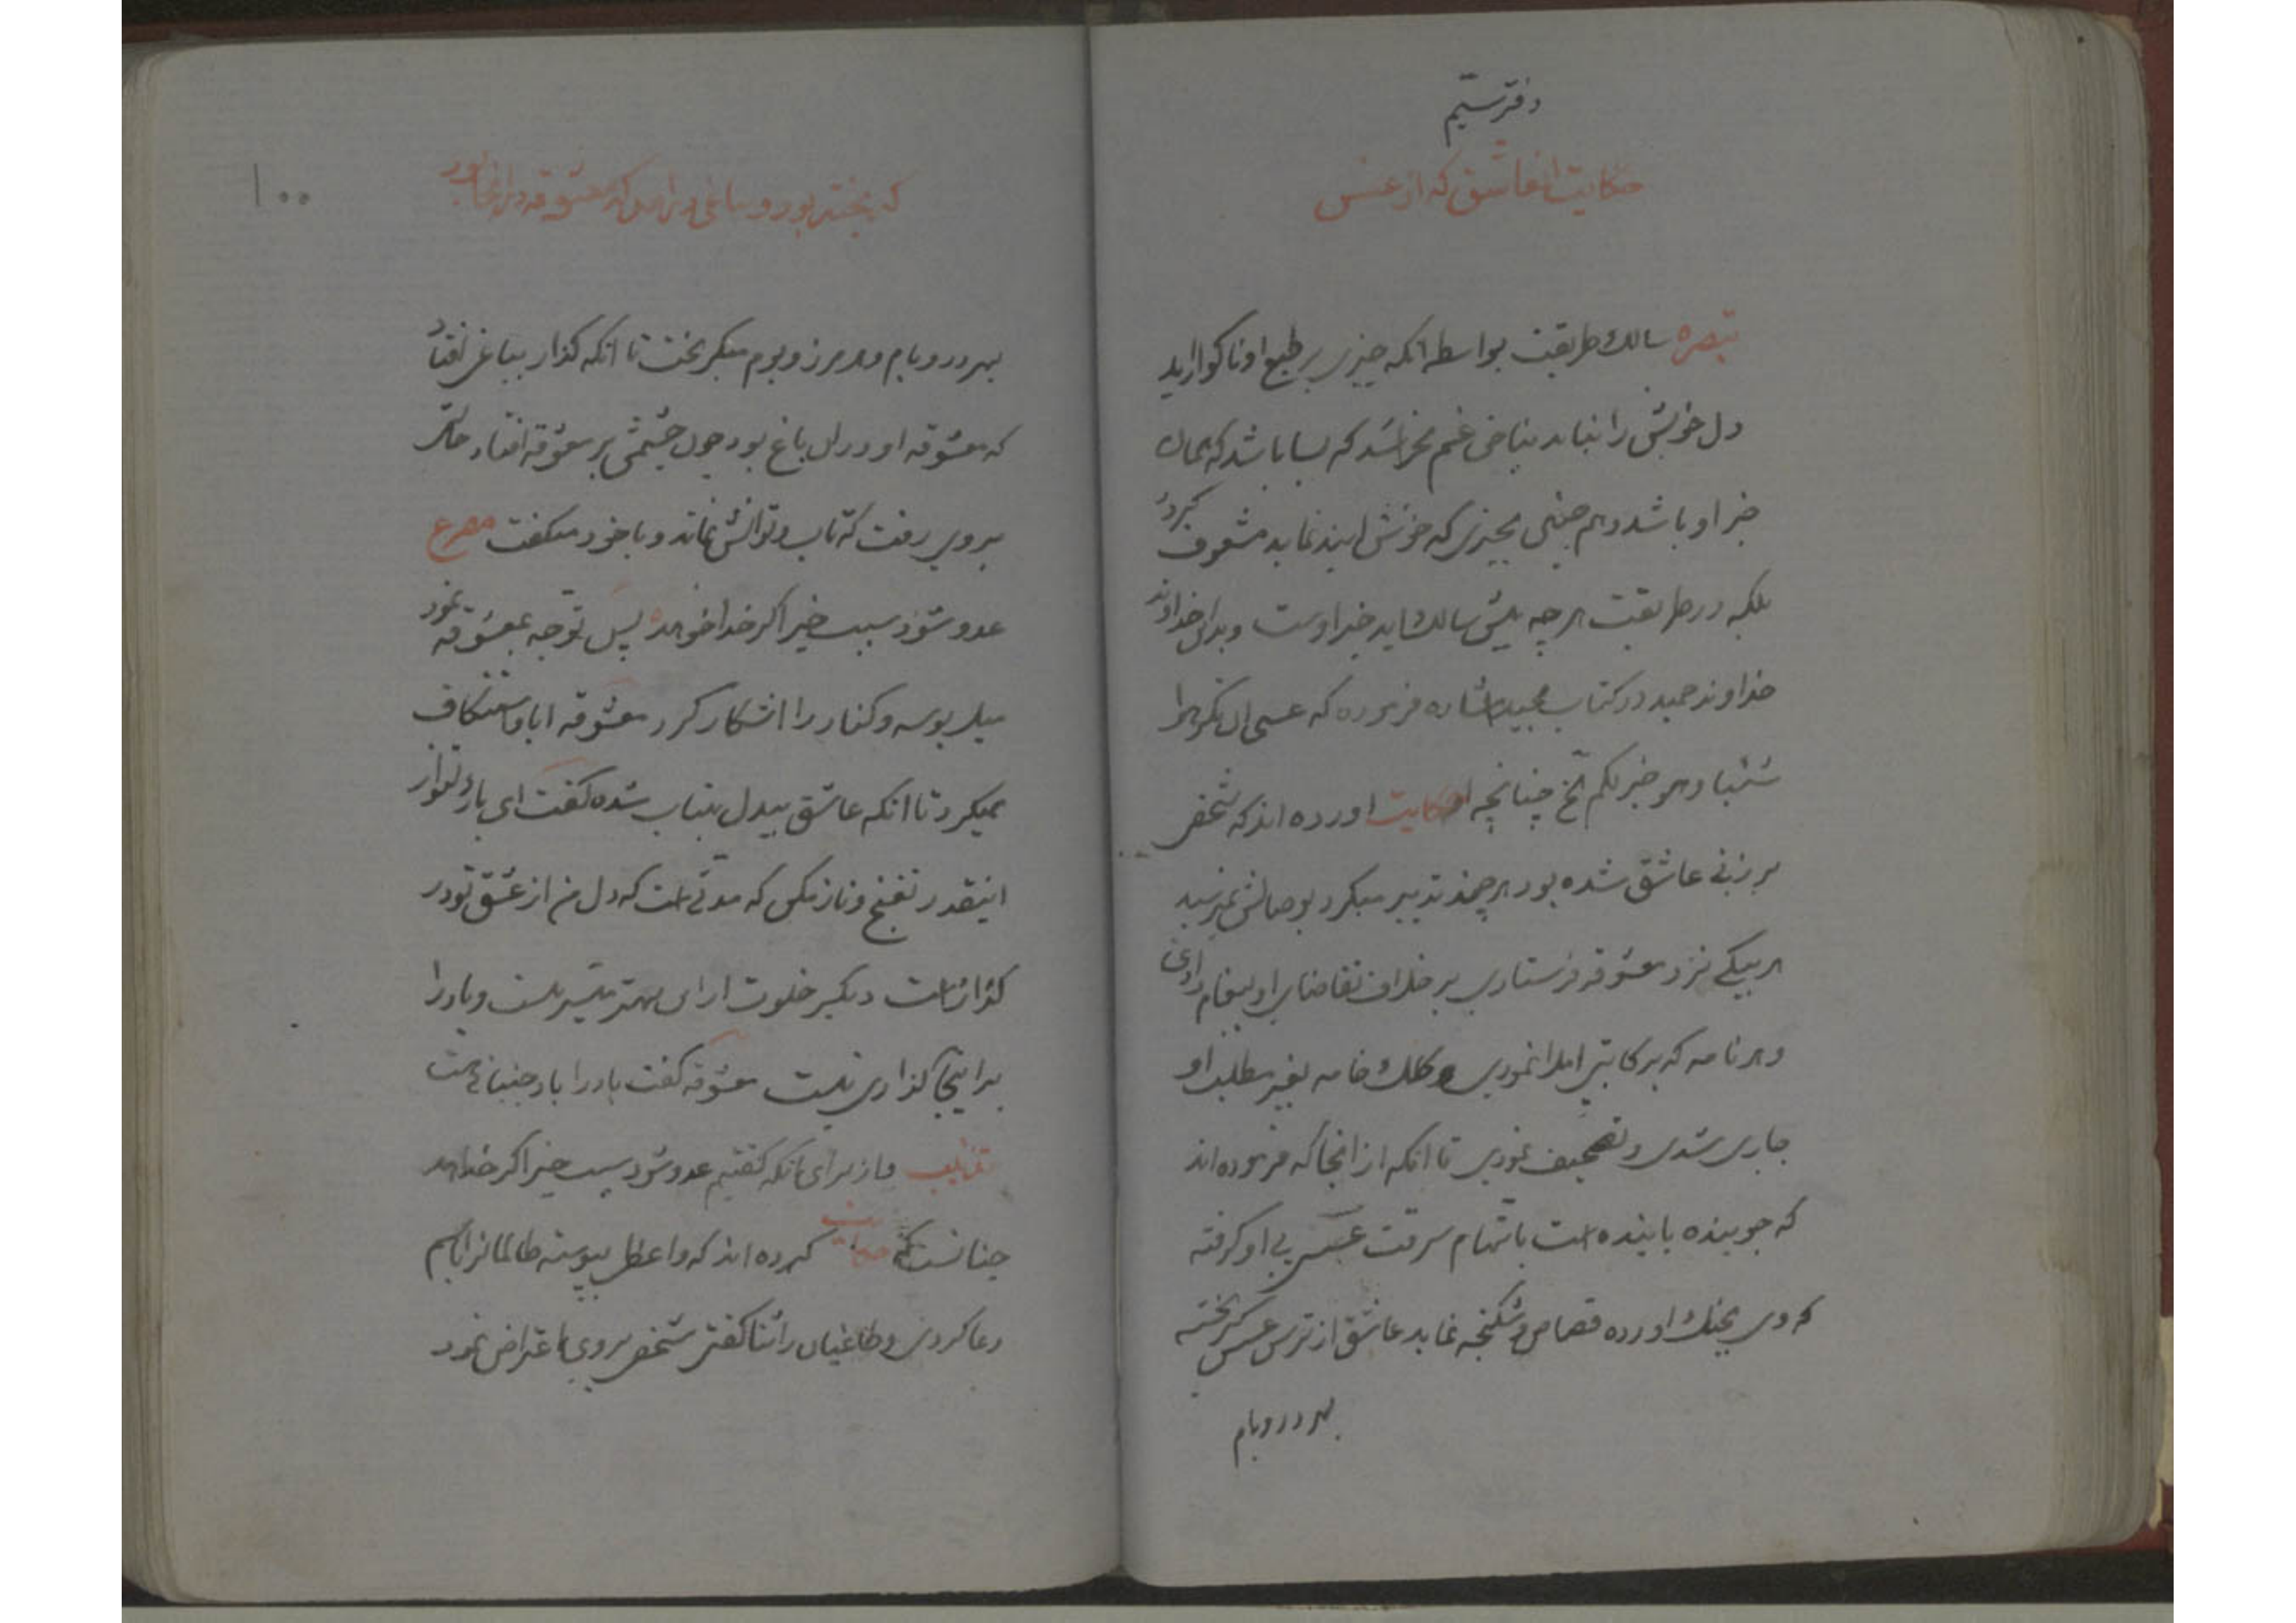 دفتر سیم
حکایت انعاشق که از عسس
تبصره سالک طریقت بواسطه انکه چیزی بر طبع او ناکوار اید
دل خویش را نباید بناخن غم بخراشد که بسا باشد که همان
خیر او باشد و هم چنین بچیزی که خوش ایند نماید مشعوف کردد
بلکه در طریقت هر چه پیش سالک اید خیر اوست
خداوند حمید در کتاب مجید اشاره فرموده که عسی ان تکرهوا
شیئا و هو خیر لکم الخ چنانچه حکایت اورده اند که شخصی
بر زنی عاشق شده بود هر چند تدبیر میکرد بوصالش نمیرسید
هر پیکی نزد معشوقه فرستادی بر خلاف تقاضای او پیغام دادی
و هر نامه که بر کاتبی املا نمودی کلک خامه بغیر مطلب او
جاری شدی و تصحیف نمودی تا انکه از انجا که فرموده اند
که جوینده یابنده است باتهام سرقت عسس پی او کرفته
که وی بچنک اورده قصاص و شکنجه نماید عاشق از ترس عسس کریخته
بهر در و بام
۱۰۰
که بخته بود و بباغی در امد که معشوقه در انجا بود
بهر در و بام و هر مرز و بوم میکریخت تا انکه کذار بباغی افتاد
که معشوقه او در ان باغ بود چون چشمش بر معشوقه افتاد حالتی
بر وی رفت که تاب و توانش نماند و با خود میکفت مصرع
عدو شود سبب خیر اکر خدا خواهد پس توجه بمعشوقه نمود
میل بوسه و کنار را اشکار کرد معشوقه ابا و استنکاف
میکرد تا انکه عاشق بیدل بیتاب شده کفت ای یار دلنواز
اینقدر تغنج و ناز مکن که مدتی است که دل من از عشق تو در
کذار است دیکر خلوت از این بهتر میسر نیست و باد را
بر اینجا کذاری نیست معشوقه کفت باد را باد جنبانی هست
تذنیب و از برای انکه کفتیم عدو شود سبب خیر اکر خدا خواهد
چنانست که حکایت کرده اند که واعظی پیوسته ظالمانرا
دعا کردی و طاغیان را ثنا کفتی شخصی بر وی اعتراض نمود